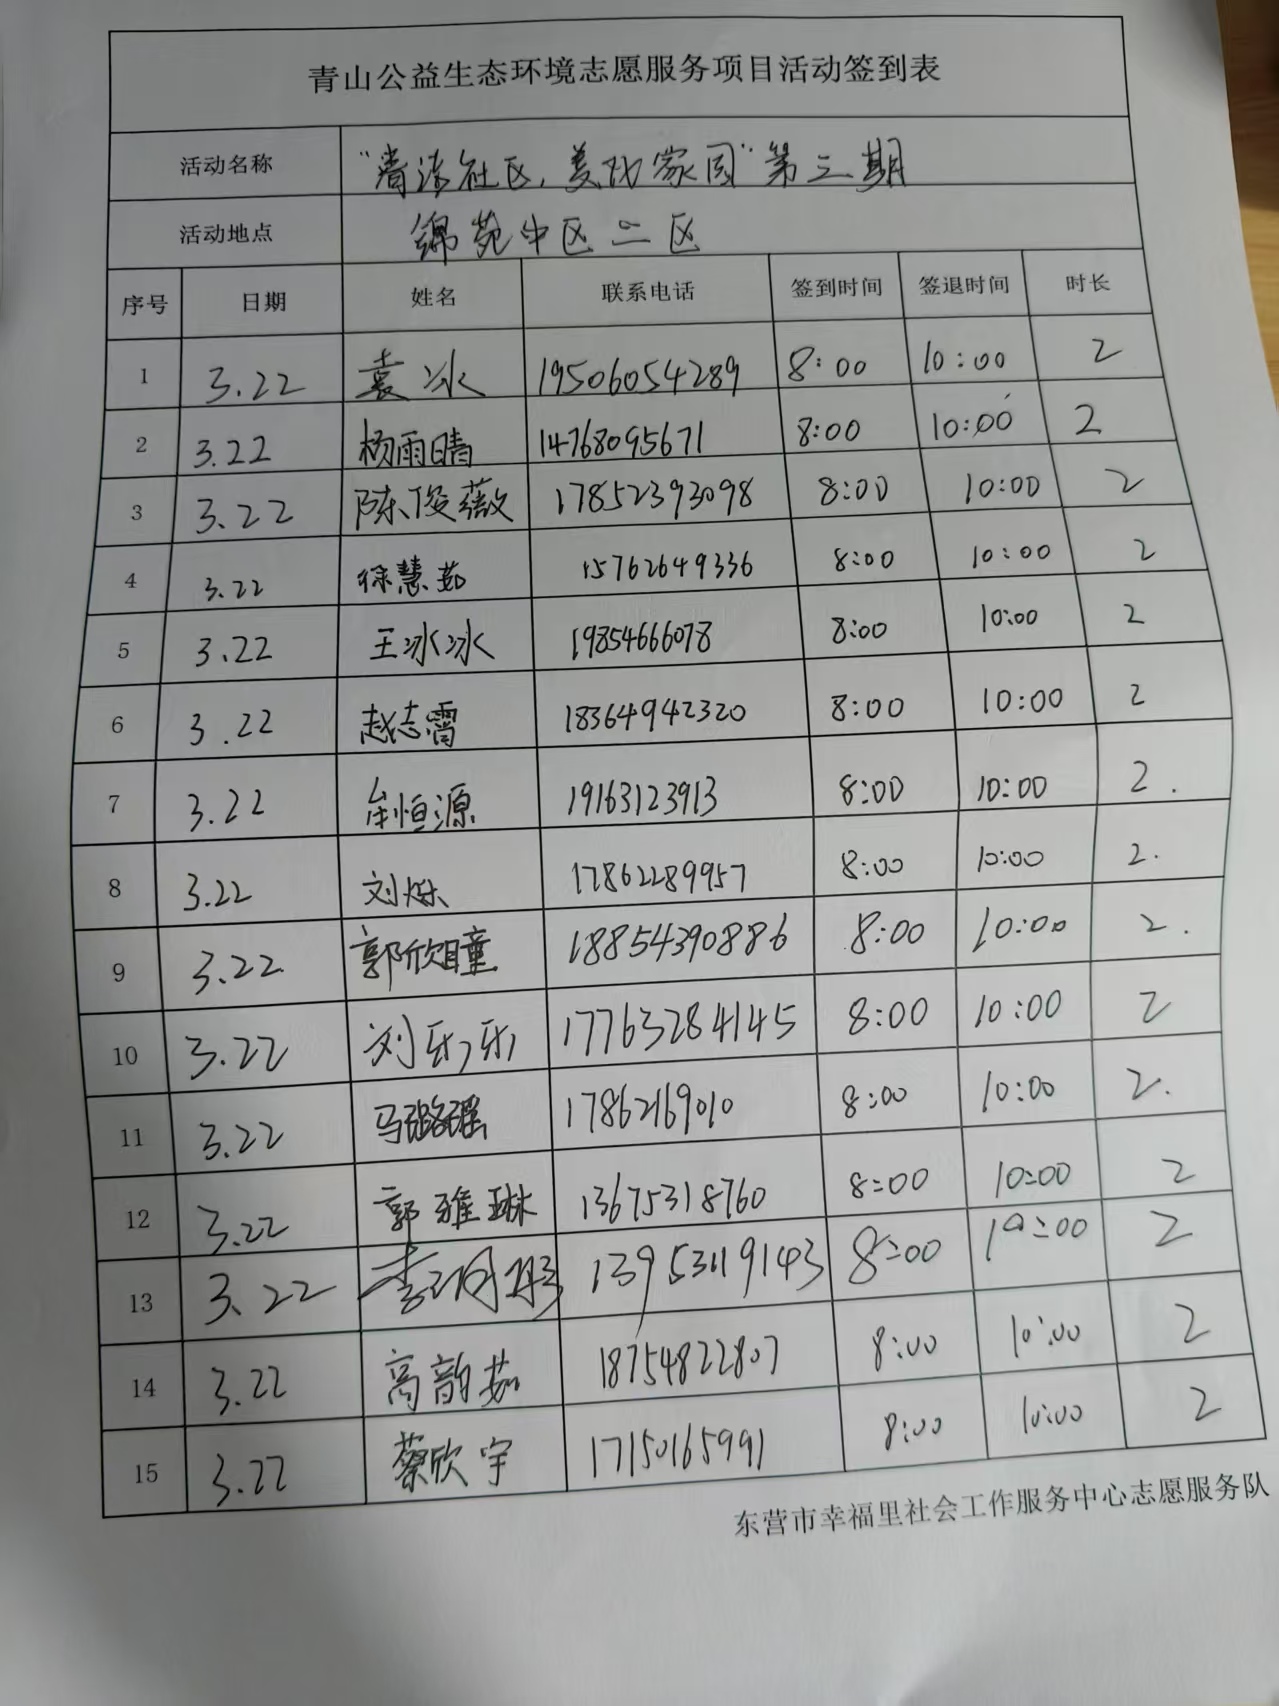 青山公益生态环境志愿服务项目活动签到表
活动名称 "清洁社区,美化家园"第三期
活动地点 锦苑中区二区
序号 日期 姓名 联系电话 签到时间 签退时间 时长
1 3.22 袁冰 19506054289 8:00 10:00 2
2 3.22 杨雨晴 14768095671 8:00 10:00 2
3 3.22 陈俊薇 17852393098 8:00 10:00 2
4 3.22 徐慧茹 15762649336 8:00 10:00 2
5 3.22 王冰冰 19854666078 8:00 10:00 2
6 3.22 赵志霄 18364942320 8:00 10:00 2
7 3.22 牟恒源 19163123913 8:00 10:00 2.
8 3.22 刘烁 17862289957 8:00 10:00 2.
9 3.22 郭欣瞳 18854390886 8:00 10:00 2.
10 3.22 刘乐乐 17763284145 8:00 10:00 2
11 3.22 马璐瑶 17862169010 8:00 10:00 2.
12 3.22 郭雅琳 13675318760 8:00 10:00 2
13 3.22 李 13953119143 8:00 10:00 2
14 3.22 高韵茹 18754822807 8:00 10:00 2
15 3.22 蔡欣宇 17150165991 8:00 10:00 2
东营市幸福里社会工作服务中心志愿服务队